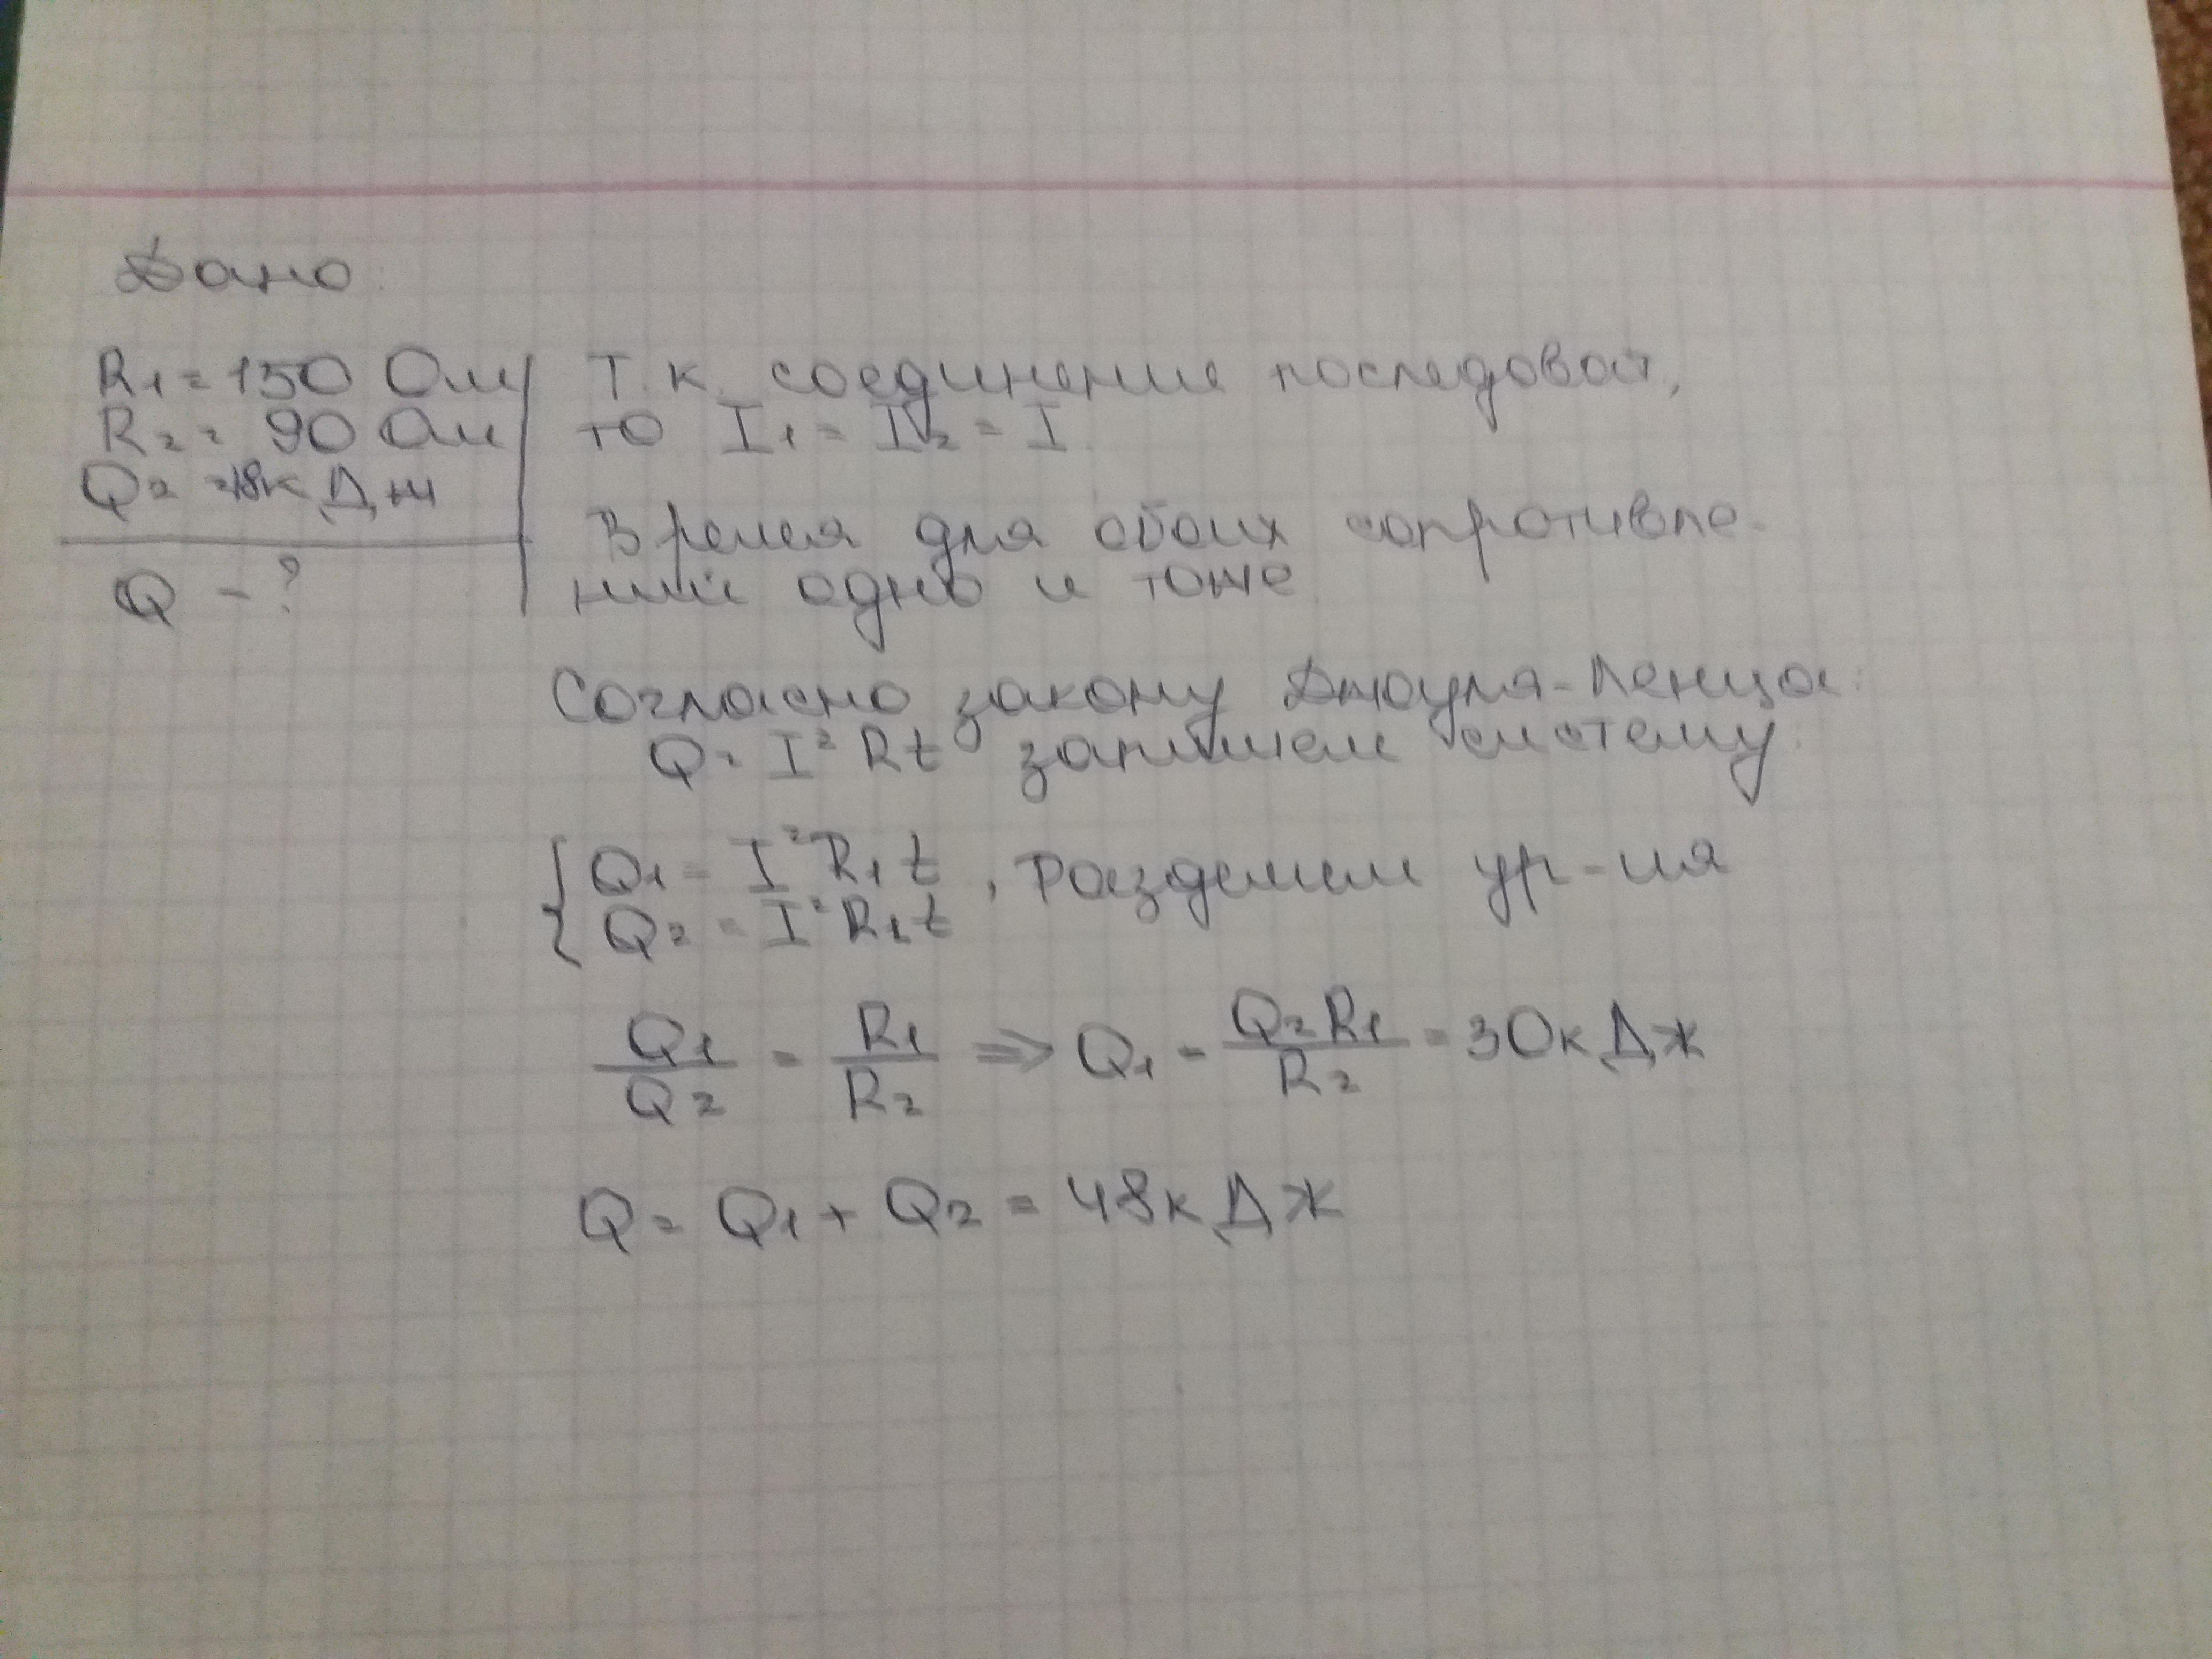 Дано:
R1 = 150 Ом
R2 = 90 Ом
Q2 = 18кДж
Q - ?
Т.к. соединение последоват,
то I1 = I2 = I.
Время для обоих сопротивле-
ний одно и тоже.
Согласно закону Джоуля-Ленца:
Q = I²Rt запишем систему:
{ Q1 = I²R1t , Разделим ур-ия
Q2 = I²R2t
Q1/Q2 = R1/R2 => Q1 = Q2R1/R2 = 30кДж
Q = Q1 + Q2 = 48кДж